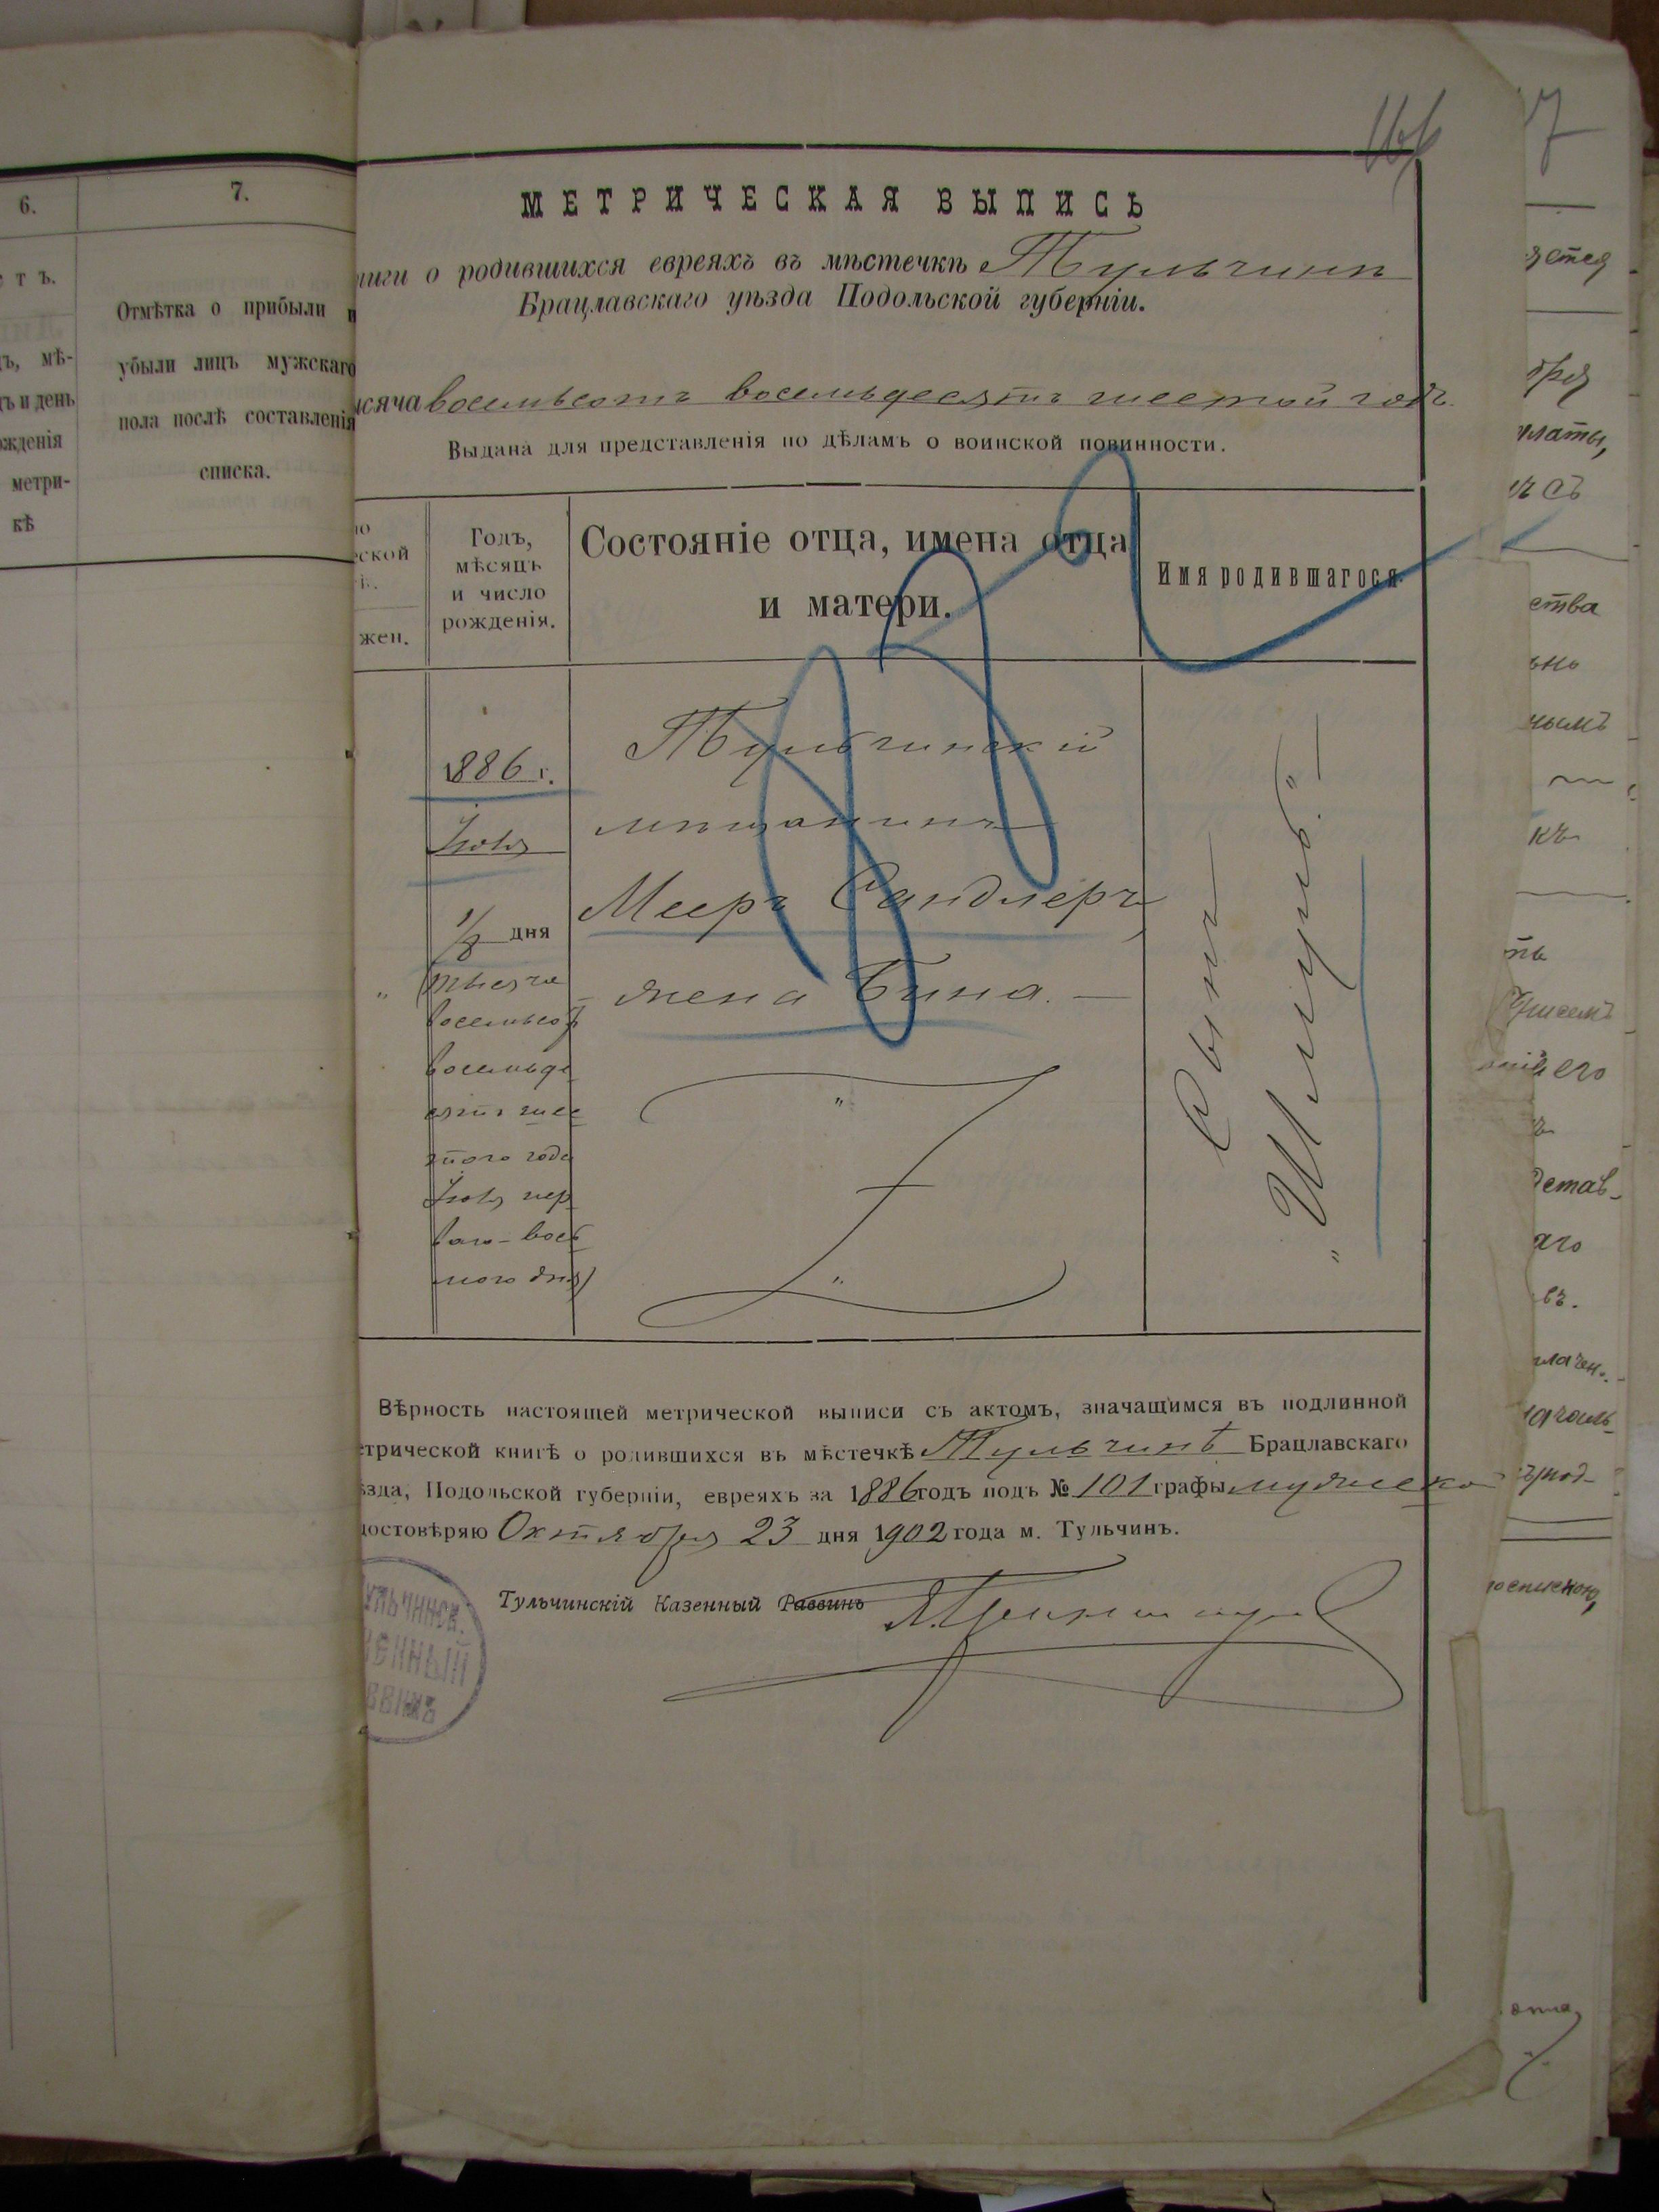 6.
7.
тъ.
Отмѣтка о прибыли и
ъ, мѣ-
убыли лицъ мужскаго
ъ и день
пола послѣ составленія
ожденія
списка.
метри-
кѣ
МЕТРИЧЕСКАЯ ВЫПИСЬ
ниги о родившихся евреяхъ въ мѣстечкѣ Тульчинѣ
Брацлавскаго уѣзда Подольской губерніи.
ысяча восемьсотъ восемьдесятъ шестой годъ.
Выдана для представленія по дѣламъ о воинской повинности.
ской
жен.
Годъ,
мѣсяцъ
и число
рожденія.
Состояніе отца, имена отца
и матери.
Имя родившагося.
1886 г.
Іюля
1/8 дня
(тысяча
восемьсот
восемьде
сятъ шес
того года
Іюля пер
ваго-вось
мого дня)
Тульчинскій
мѣщанинъ
Мееръ Сандлеръ
жена Бина.
Сынъ
"Шмуль".
Вѣрность настоящей метрической выписи съ актомъ, значащимся въ подлинной
етрической книгѣ о родившихся въ мѣстечкѣ Тульчинѣ Брацлавскаго
ѣзда, Подольской губерніи, евреяхъ за 1886 годъ подъ № 101 графы мужско
достовѣряю Октября 23 дня 1902 года м. Тульчинъ.
Тульчинскій Казенный Раввинъ
ульчинск.
енный
ввинъ
7
ется
платы,
ъ съ
ства
ьно
нымъ
къ
его
детав-
аго
въ.